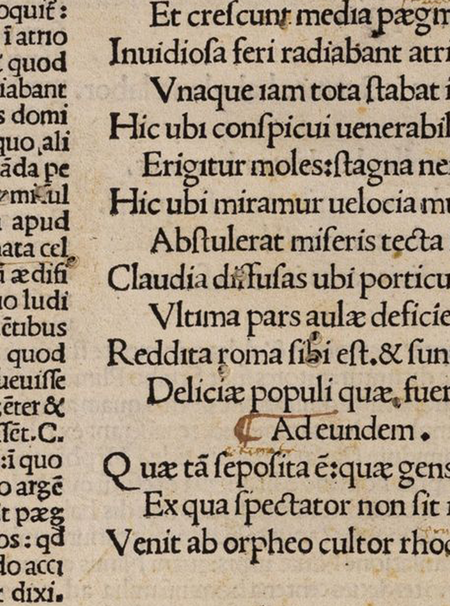 oquit:
ī atrio
quod
iabant
s domi
quo ali
āda pe
mit ul
apud
nata cel
ædifi
uo ludi
ētibus
quod
ueuisse
gēter &
ssēt. C.
:ī quo
o argē
t pæg
os: qd
do acci
dixi.
Et crescunt media pægm
Inuidiosa feri radiabant atri
Vnaque iam tota stabat i
Hic ubi conspicui uenerabil
Erigitur moles: stagna ne
Hic ubi miramur uelocia mu
Abstulerat miseris tecta
Claudia diffusas ubi porticu
Vltima pars aulæ deficie
Reddita roma sibi est. & sun
Deliciæ populi quæ, fuer
Ad eundem.
Quæ tā seposita ē: quæ gens
Ex qua spectator non sit
Venit ab orpheo cultor rhod